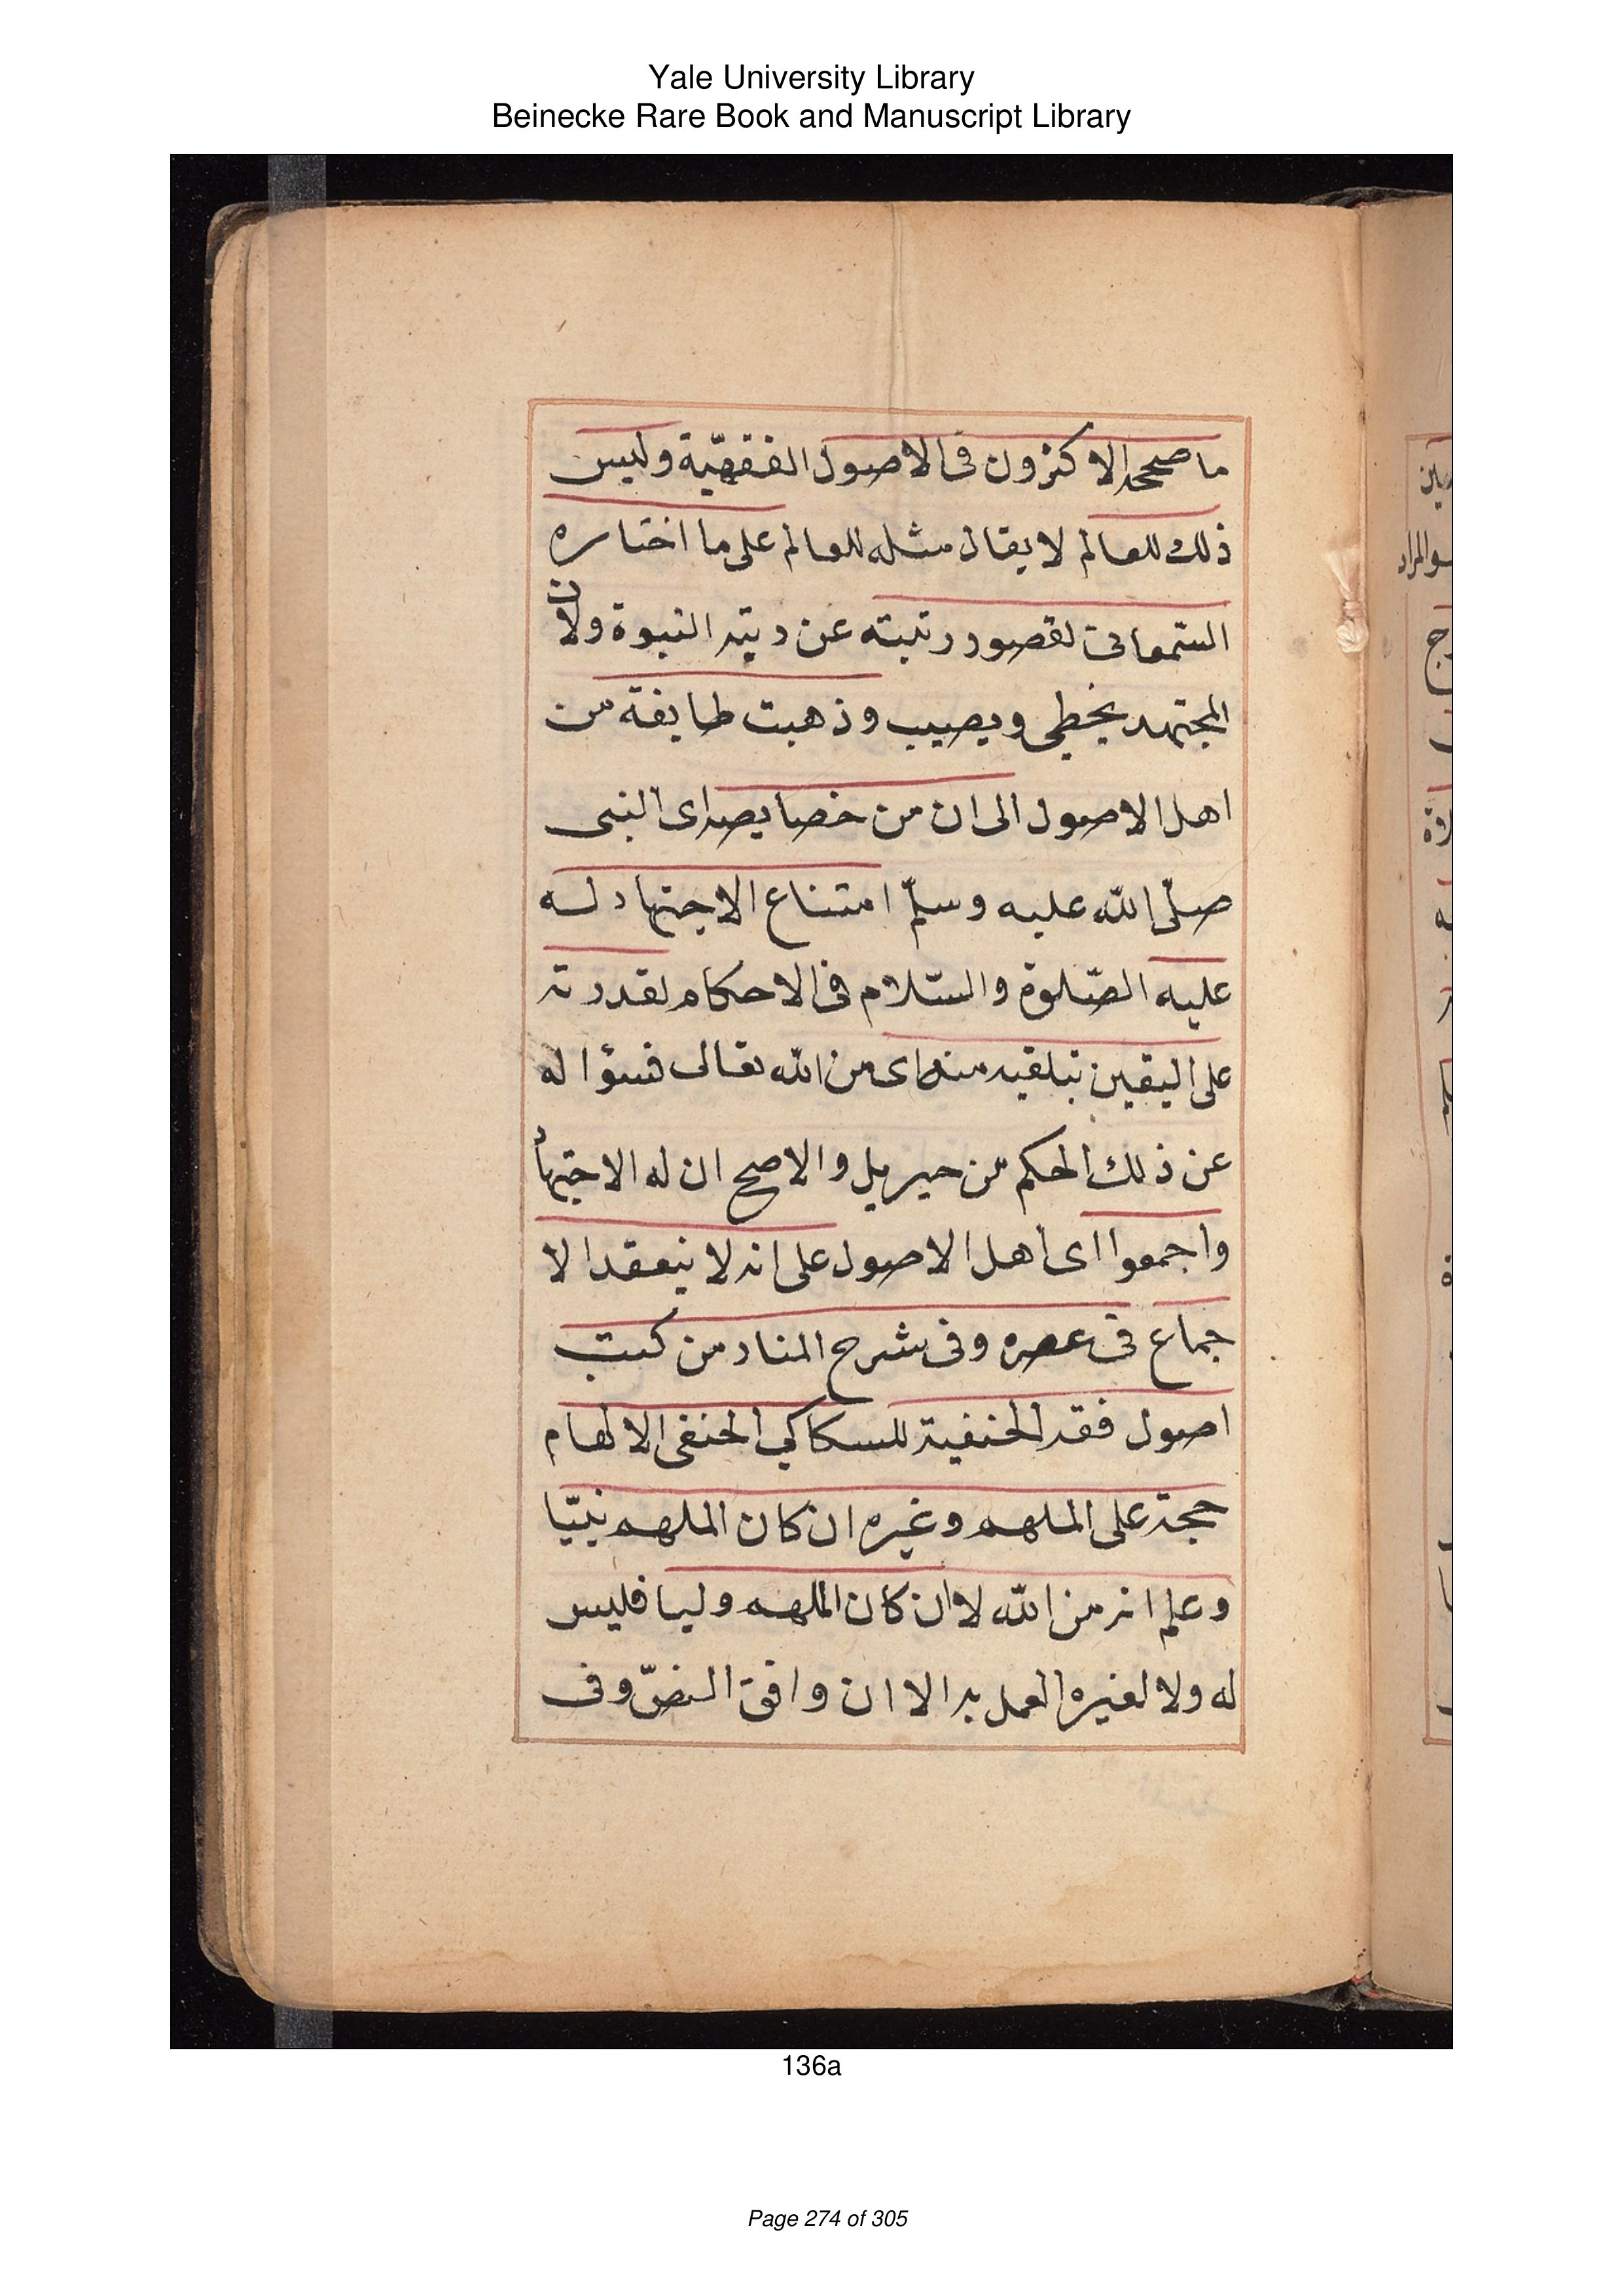 Yale University Library
Beinecke Rare Book and Manuscript Library
ما صححه الاكثرون فى الاصول الفقهيّة وليس
ذلك للعالم لا يقال مثله للعالم على ما اختاره
السّمعانى لقصور رتبته عن رتبة النبوة ولان
المجتهد يخطى ويصيب وذهبت طايفة من
اهل الاصول الى ان من خصايصه اى النبى
صلّى الله عليه وسلّم امتناع الاجتهاد له
عليه الصّلوة والسّلام فى الاحكام لقدرته
على اليقين بتلقيه منه اى من الله تعالى فسؤاله
عن ذلك الحكم من جبريل والاصح ان له الاجتهاد
واجمعوا اى اهل الاصول على انه لا ينعقد الا
جماع فى عصره وفى شرح المنار من كتب
اصول فقه الحنفية للسكاكي الحنفى الالهام
حجة على الملهم وغيره ان كان الملهم نبيّا
وعلم انه من الله لا ان كان الملهم وليا فليس
له ولا لغيره العمل به الا ان وافق النصّ وفى
صين
والمراد
136a
Page 274 of 305